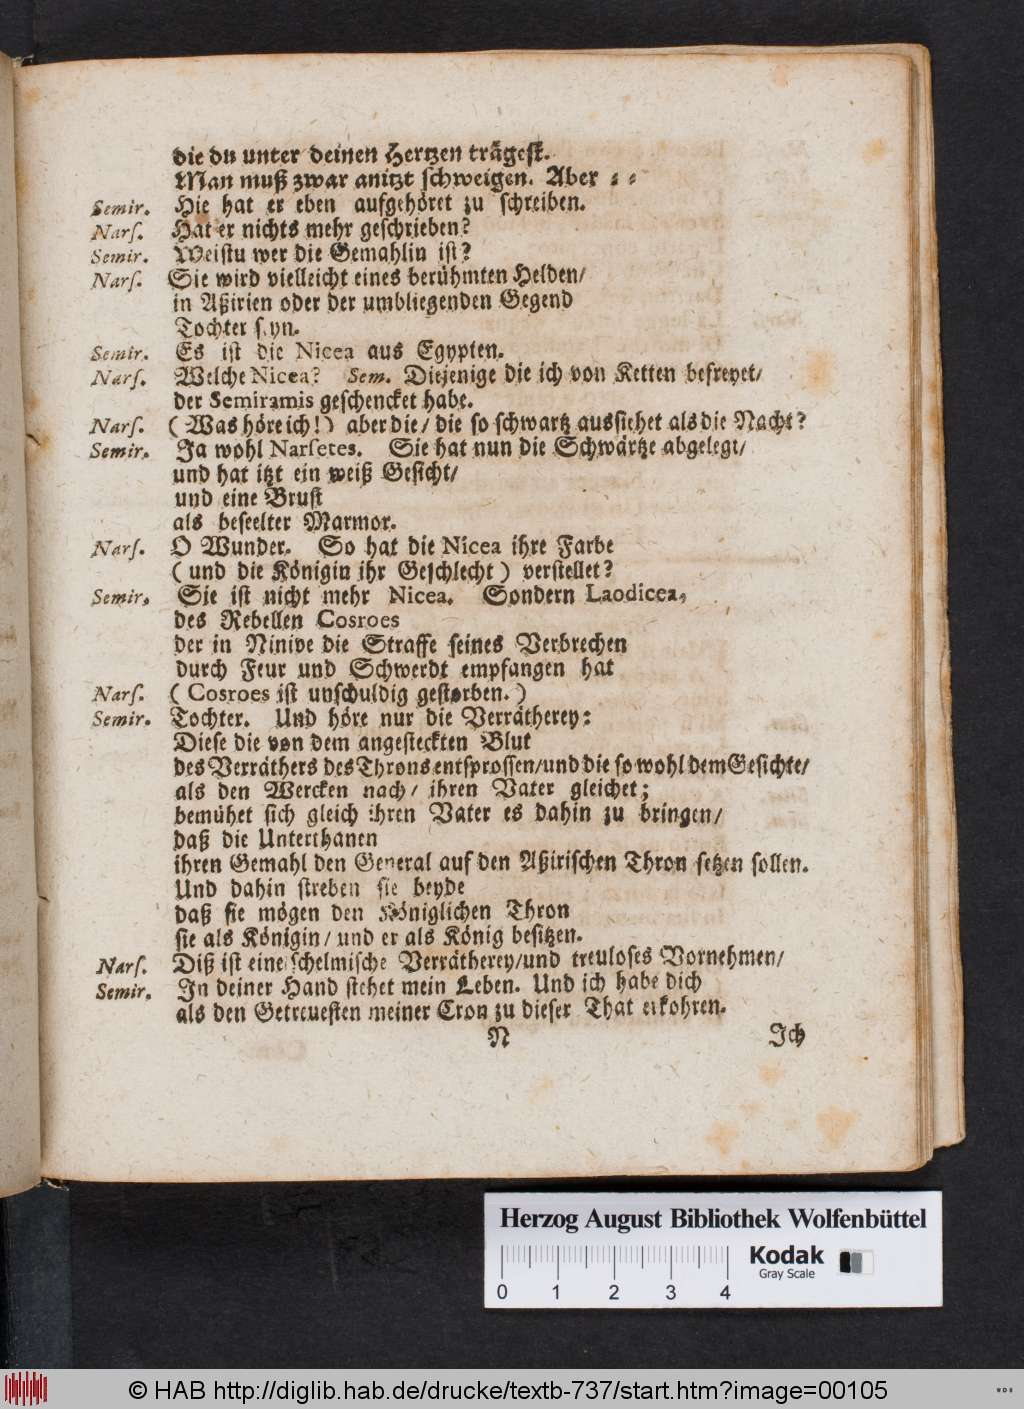 die du unter deinen Hertzen trägest.
Man muß zwar anitzt schweigen. Aber ⸗ ⸗
Semir. Hie hat er eben aufgehöret zu schreiben.
Nars. Hat er nichts mehr geschrieben?
Semir. Weistu wer die Gemahlin ist?
Nars. Sie wird vielleicht eines berühmten Helden/
in Aßirien oder der umbliegenden Gegend
Tochter seyn.
Semir. Es ist die Nicea aus Egypten.
Nars. Welche Nicea? Sem. Diejenige die ich von Ketten befreyet/
der Semiramis geschencket habe.
Nars. (Was höre ich!) aber die/ die so schwartz aussiehet als die Nacht?
Semir. Ja wohl Narsetes. Sie hat nun die Schwärtze abgelegt/
und hat itzt ein weiß Gesicht/
und eine Brust
als beseelter Marmor.
Nars. O Wunder. So hat die Nicea ihre Farbe
(und die Königin ihr Geschlecht) verstellet?
Semir. Sie ist nicht mehr Nicea. Sondern Laodicea,
des Rebellen Cosroes
der in Ninive die Straffe seines Verbrechen
durch Feur und Schwerdt empfangen hat
Nars. (Cosroes ist unschuldig gestorben.)
Semir. Tochter. Und höre nur die Verrätherey:
Diese die von dem angesteckten Blut
des Verräthers des Throns entsprossen/und die so wohl dem Gesichte/
als den Wercken nach/ ihren Vater gleichet;
bemühet sich gleich ihren Vater es dahin zu bringen/
daß die Unterthanen
ihren Gemahl den General auf den Aßirischen Thron setzen sollen.
Und dahin streben sie beyde
daß sie mögen den Königlichen Thron
sie als Königin/ und er als König besitzen.
Nars. Diß ist eine schelmische Verrätherey/und treuloses Vornehmen/
Semir. In deiner Hand stehet mein Leben. Und ich habe dich
als den Getreuesten meiner Cron zu dieser That erkohren.
N Ich
Herzog August Bibliothek Wolfenbüttel
Kodak
Gray Scale
0 1 2 3 4
© HAB http://diglib.hab.de/drucke/textb-737/start.htm?image=00105